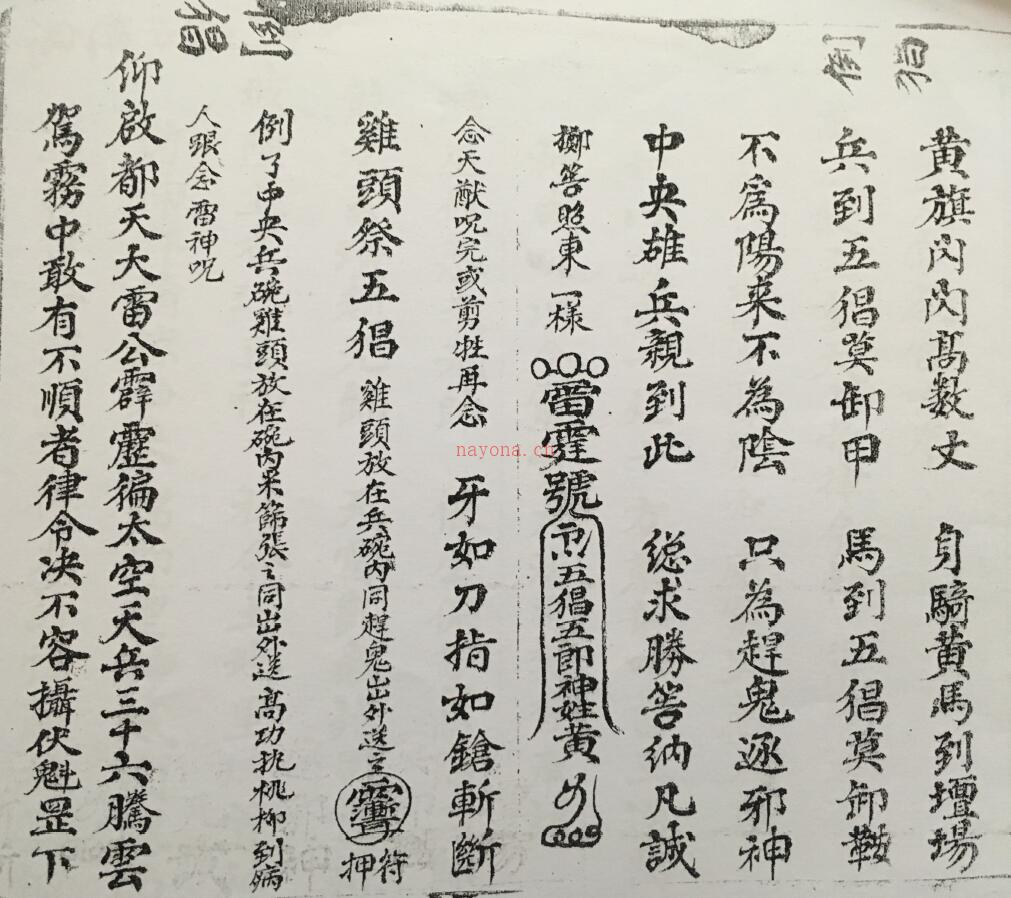 倒猖
黄旗闪闪高数丈　身騎黄馬到壇場
兵到五猖莫卸甲　馬到五猖莫卸鞍
不爲陽来不為陰　只為趕鬼逐邪神
中央雄兵親到此　縂求勝筶纳凡誠
擲筶照東一様　雷霆號　五猖五郎神姓黄
念天猷咒完或剪牲再念　牙如刀指如鎗斬斷
雞頭祭五猖　雞頭放在兵碗内同趕鬼出外送之　符押
倒了中央兵碗雞頭放在碗内米篩張之同出外送高功执桃柳到病
人跟念雷神咒
倒猖
仰啟都天大雷公霹靂徧太空天兵三十六騰雲
駕霧中敢有不順者律令决不容攝伏魁罡下
nayona.cn